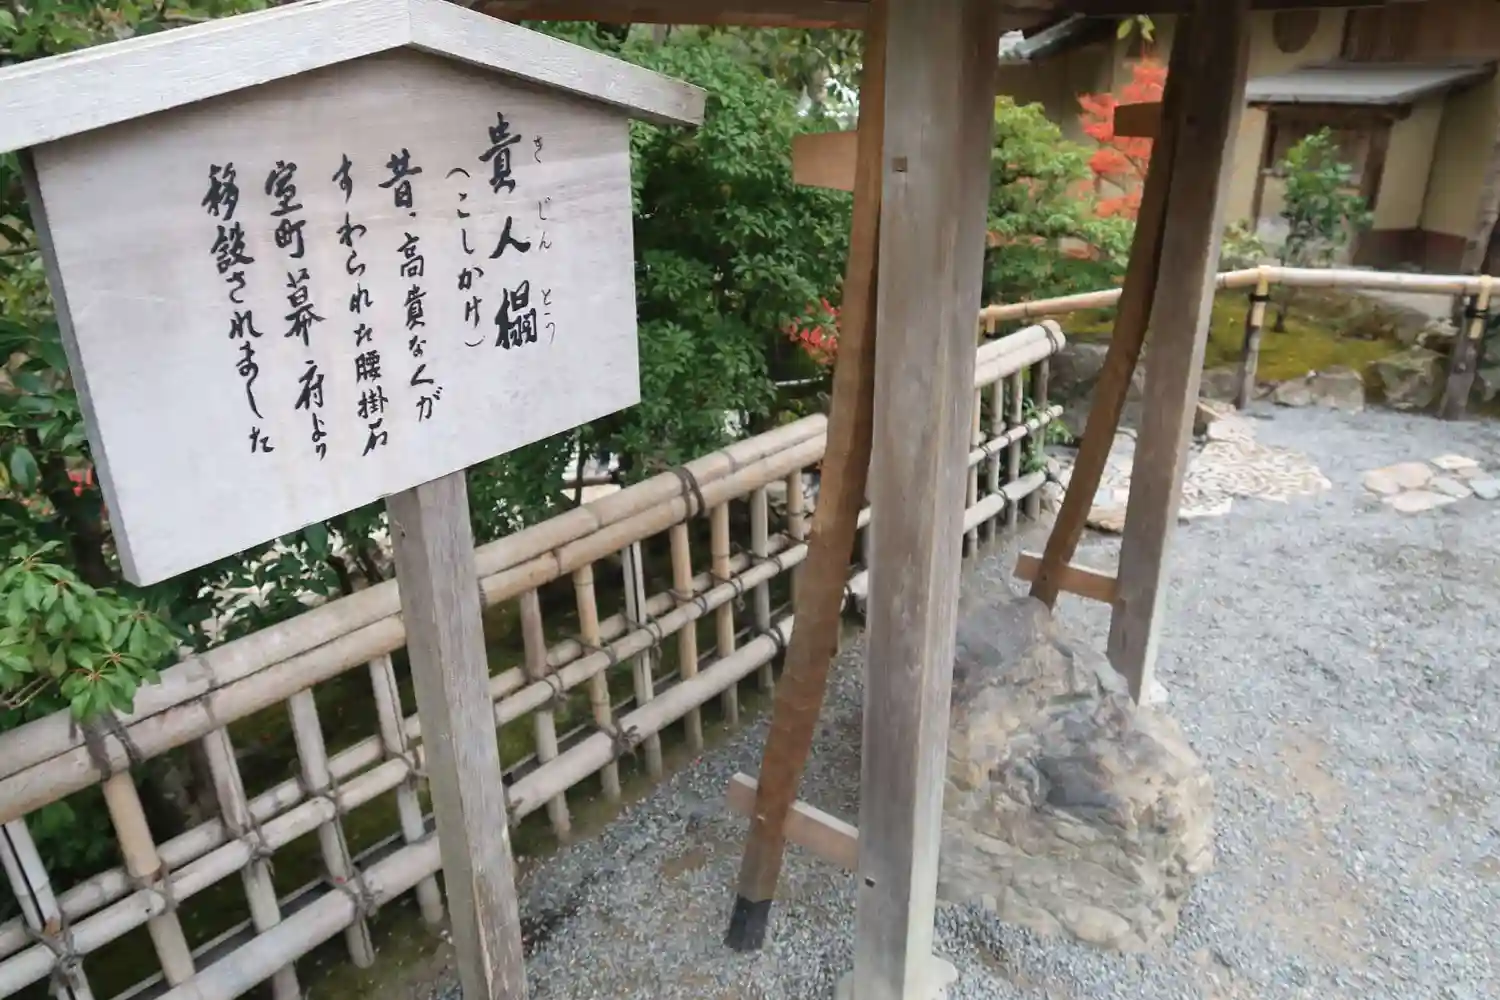 貴人榻
きじんとう
(こしかけ)
昔、高貴な人が
すわられた腰掛石
室町幕府より
移設されました